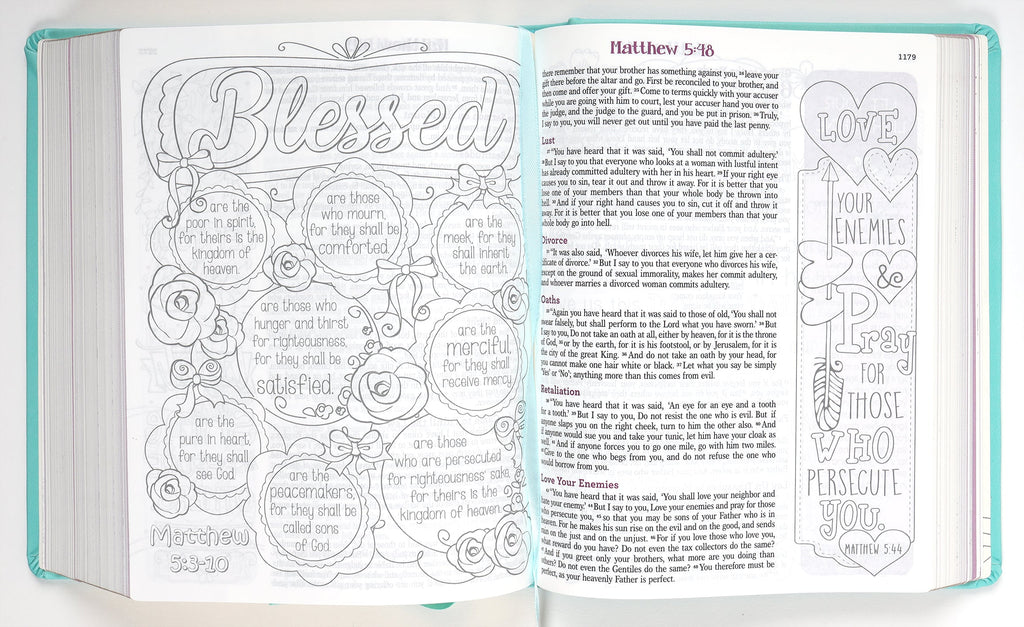 Blessed
are the
poor in spirit,
for theirs is the
kingdom of
heaven.
are those
who mourn,
for they shall be
comforted.
are the
meek, for they
shall inherit
the earth.
are those who
hunger and thirst
for righteousness,
for they shall be
satisfied.
are the
merciful,
for they shall
receive mercy.
are the
pure in heart,
for they shall
see God.
are the
peacemakers,
for they shall be
called sons
of God.
are those
who are persecuted
for righteousness' sake,
for theirs is the
kingdom of heaven.
Matthew
5:3-10
Matthew 5:48
1179
there remember that your brother has something against you, 24 leave your
gift there before the altar and go. First be reconciled to your brother, and
then come and offer your gift. 25 Come to terms quickly with your accuser
while you are going with him to court, lest your accuser hand you over to
the judge, and the judge to the guard, and you be put in prison. 26 Truly,
I say to you, you will never get out until you have paid the last penny.
Lust
27 "You have heard that it was said, 'You shall not commit adultery.'
28 But I say to you that everyone who looks at a woman with lustful intent
has already committed adultery with her in his heart. 29 If your right eye
causes you to sin, tear it out and throw it away. For it is better that you
lose one of your members than that your whole body be thrown into
hell. 30 And if your right hand causes you to sin, cut it off and throw it
away. For it is better that you lose one of your members than that your
whole body go into hell.
Divorce
31 "It was also said, 'Whoever divorces his wife, let him give her a cer-
tificate of divorce.' 32 But I say to you that everyone who divorces his wife,
except on the ground of sexual immorality, makes her commit adultery,
and whoever marries a divorced woman commits adultery.
Oaths
33 "Again you have heard that it was said to those of old, 'You shall not
swear falsely, but shall perform to the Lord what you have sworn.' 34 But
I say to you, Do not take an oath at all, either by heaven, for it is the throne
of God, 35 or by the earth, for it is his footstool, or by Jerusalem, for it is
the city of the great King. 36 And do not take an oath by your head, for
you cannot make one hair white or black. 37 Let what you say be simply
'Yes' or 'No'; anything more than this comes from evil.
Retaliation
38 "You have heard that it was said, 'An eye for an eye and a tooth
for a tooth.' 39 But I say to you, Do not resist the one who is evil. But if
anyone slaps you on the right cheek, turn to him the other also. 40 And
if anyone would sue you and take your tunic, let him have your cloak as
well. 41 And if anyone forces you to go one mile, go with him two miles.
42 Give to the one who begs from you, and do not refuse the one who
would borrow from you.
Love Your Enemies
43 "You have heard that it was said, 'You shall love your neighbor and
hate your enemy.' 44 But I say to you, Love your enemies and pray for those
who persecute you, 45 so that you may be sons of your Father who is in
heaven. For he makes his sun rise on the evil and on the good, and sends
rain on the just and on the unjust. 46 For if you love those who love you,
what reward do you have? Do not even the tax collectors do the same?
47 And if you greet only your brothers, what more are you doing than
others? Do not even the Gentiles do the same? 48 You therefore must be
perfect, as your heavenly Father is perfect.
LOVE
YOUR
ENEMIES
&
Pray
FOR
THOSE
WHO
PERSECUTE
YOU.
MATTHEW 5:44